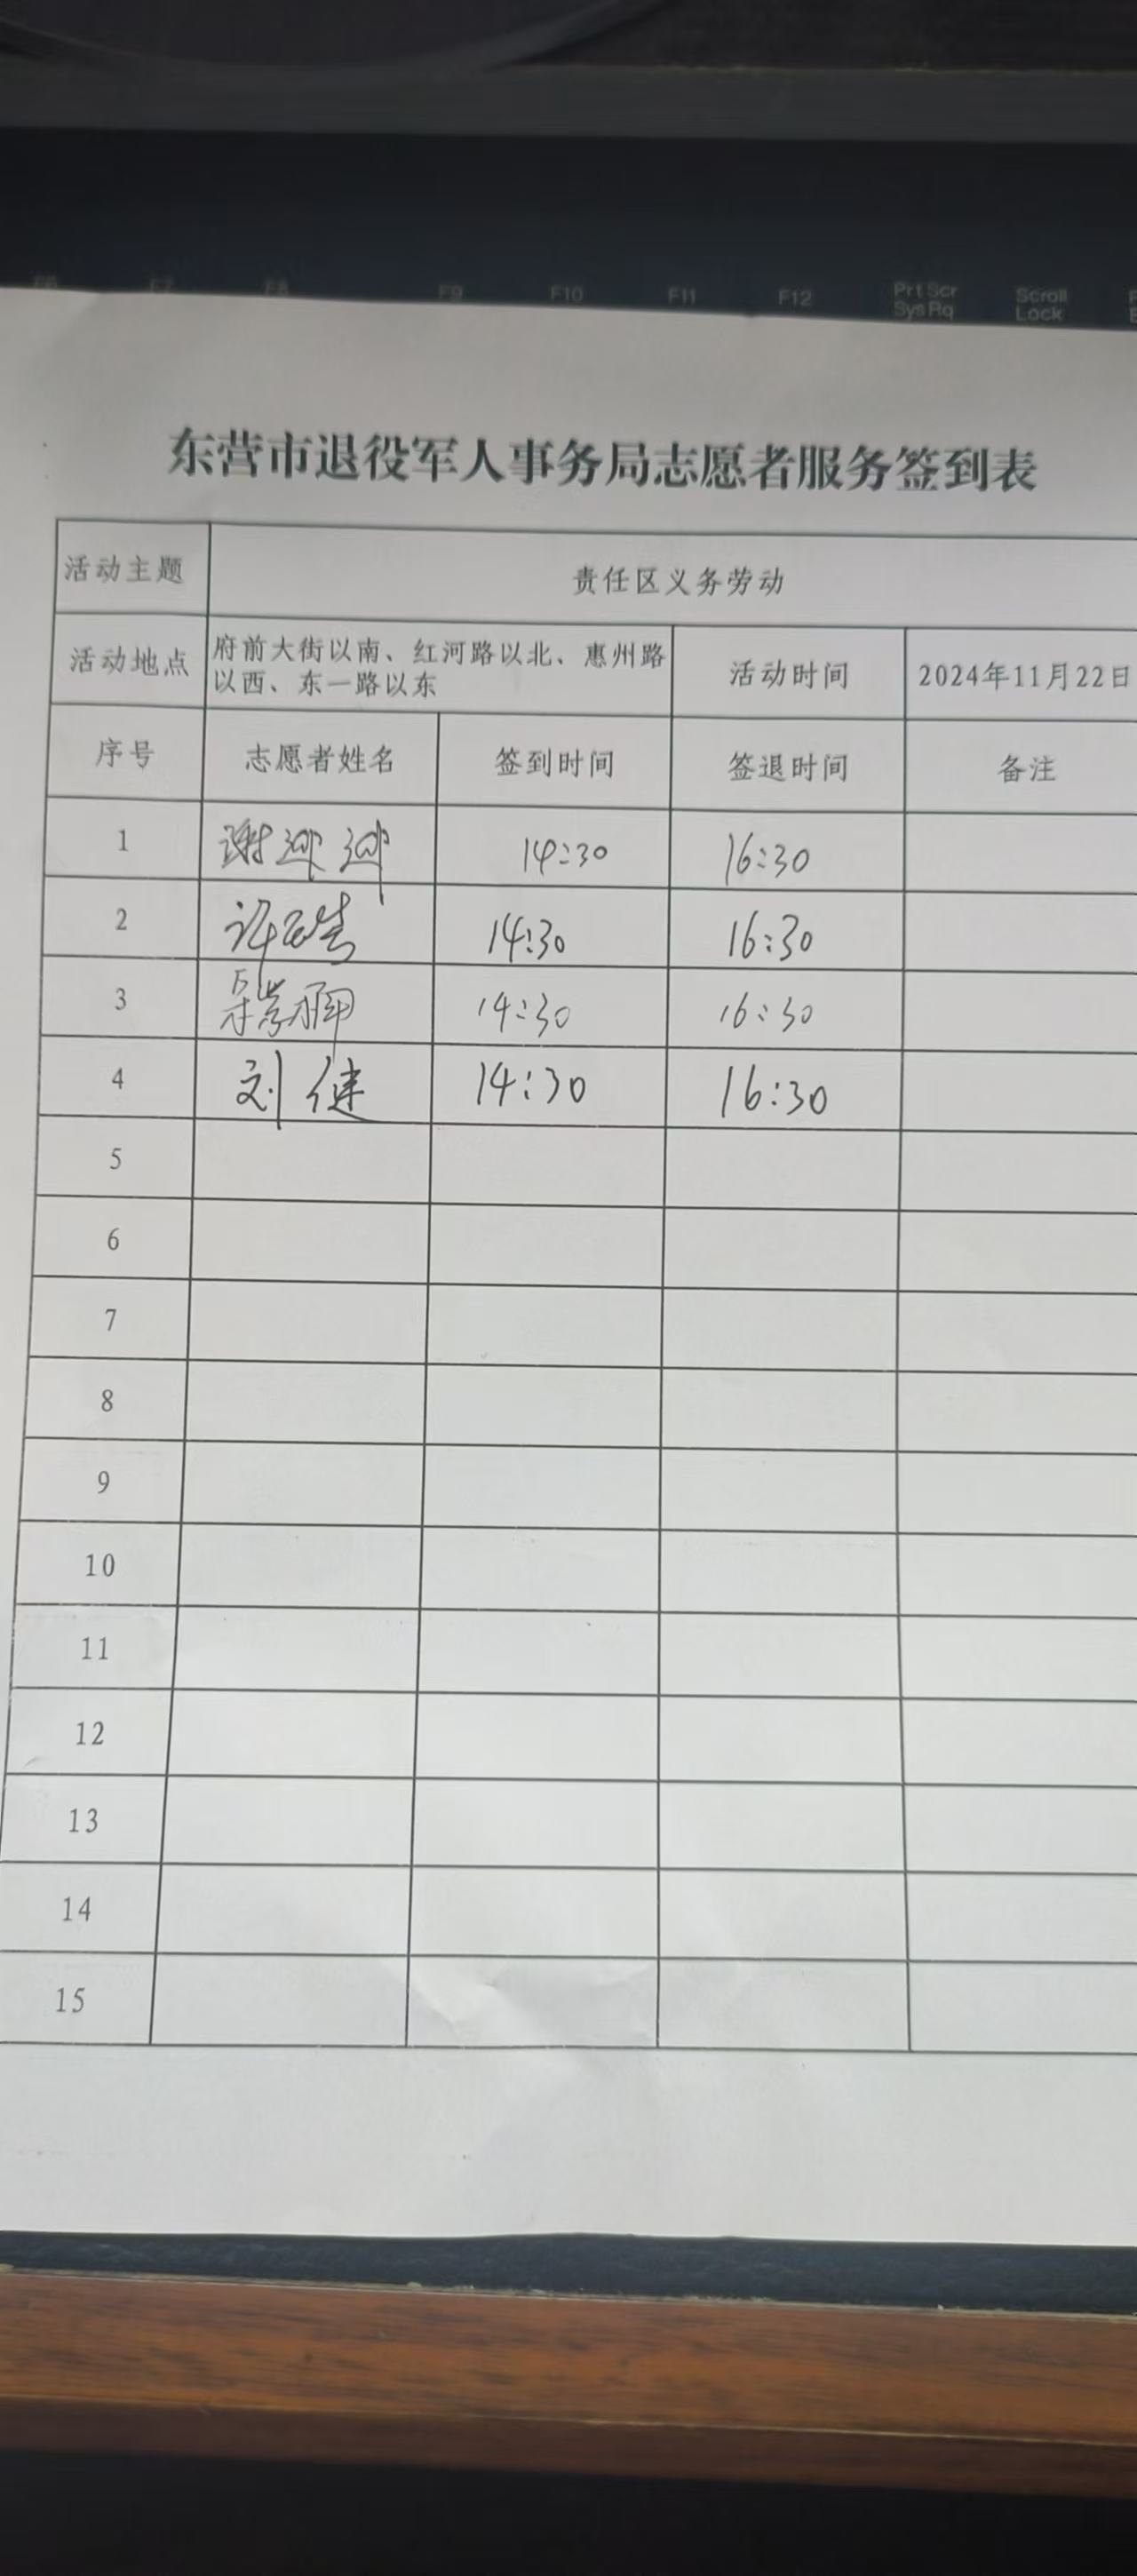 F9 F10 F11 F12 PrtScr SysRq Scroll Lock
东营市退役军人事务局志愿者服务签到表
活动主题 责任区义务劳动
活动地点 府前大街以南、红河路以北、惠州路以西、东一路以东 活动时间 2024年11月22日
序号 志愿者姓名 签到时间 签退时间 备注
1 谢迎迎 14:30 16:30
2 14:30 16:30
3 14:30 16:30
4 刘健 14:30 16:30
5
6
7
8
9
10
11
12
13
14
15